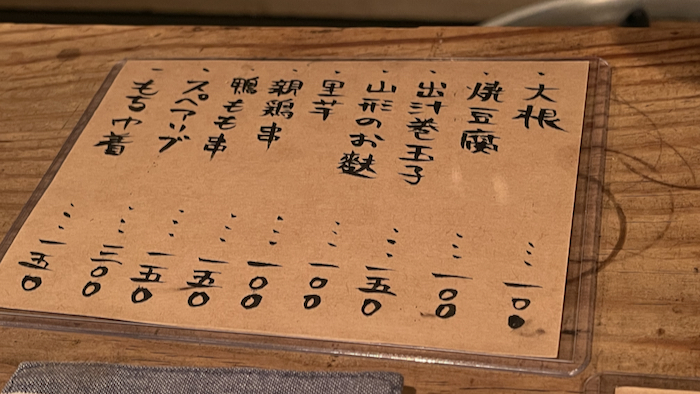 ・大根…一〇〇
・焼豆腐…一〇〇
・出汁巻玉子…一五〇
・山形のお麩…一〇〇
・里芋…一〇〇
・親鶏串…一五〇
・鴨もも串…一五〇
・スペアリブ…三〇〇
・もち巾着…一五〇